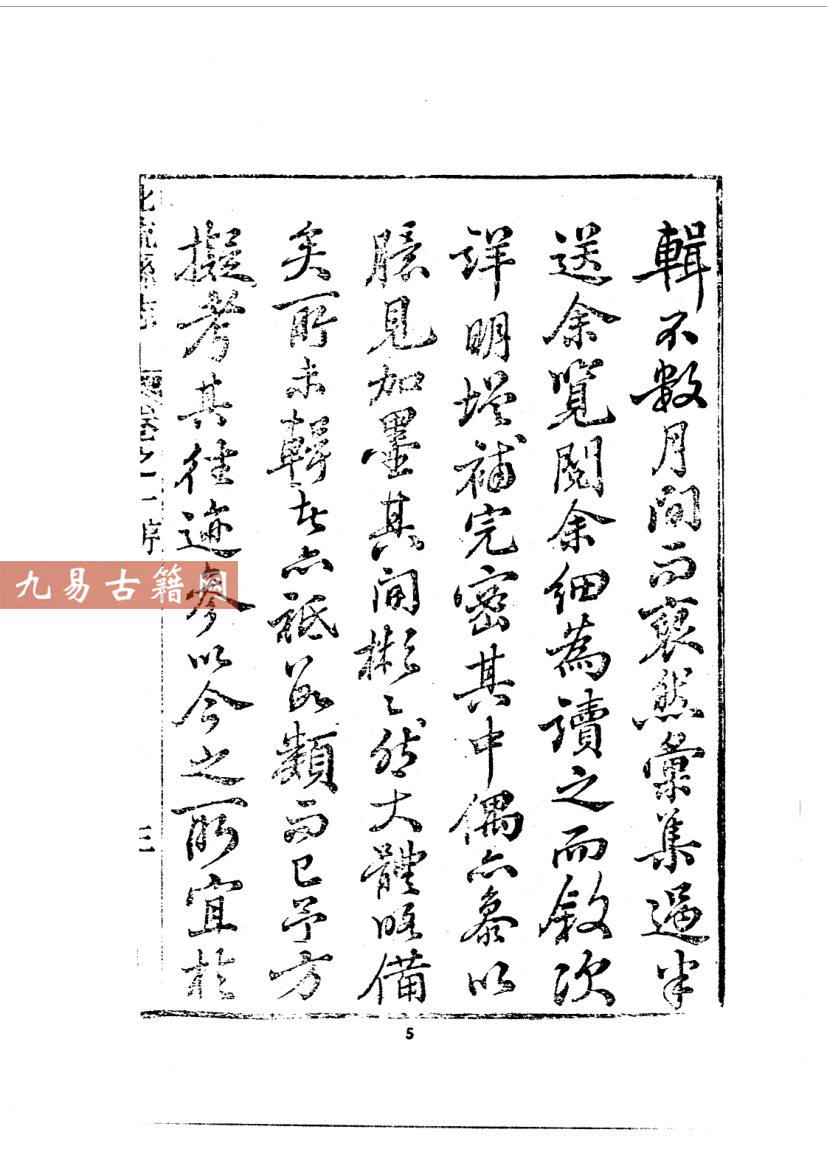 輯不數月間而裒然彙集過半
送余覽閱余細為讀之而敘次
詳明增補完密其中偶亦忝以
臆見加墨其間彬〻然大體略備
矣所未輯者亦祗藝類而已予方
擬考其往迹參以今之所宜於
北流縣志 卷之一 序 三
九易古籍网
5